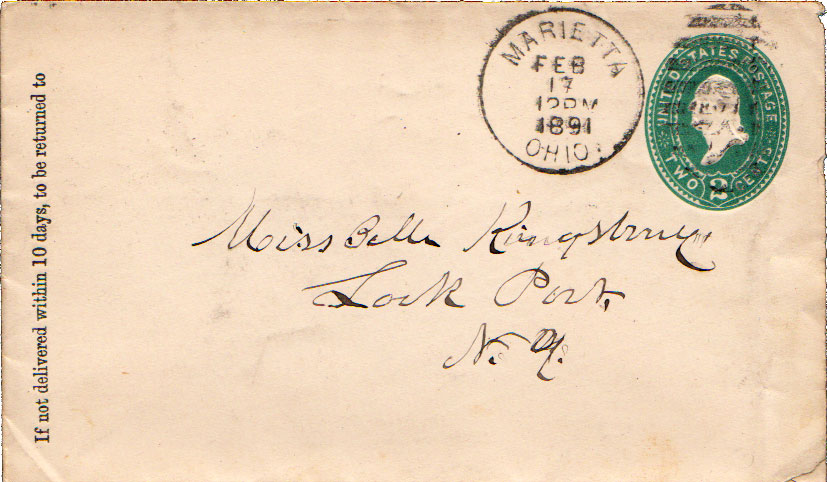 If not delivered within 10 days, to be returned to
MARIETTA
FEB
17
12PM
1891
OHIO
UNITED STATES POSTAGE
TWO 2 CENTS
Miss Belle Kingsbury
Lock Port,
N. Y.